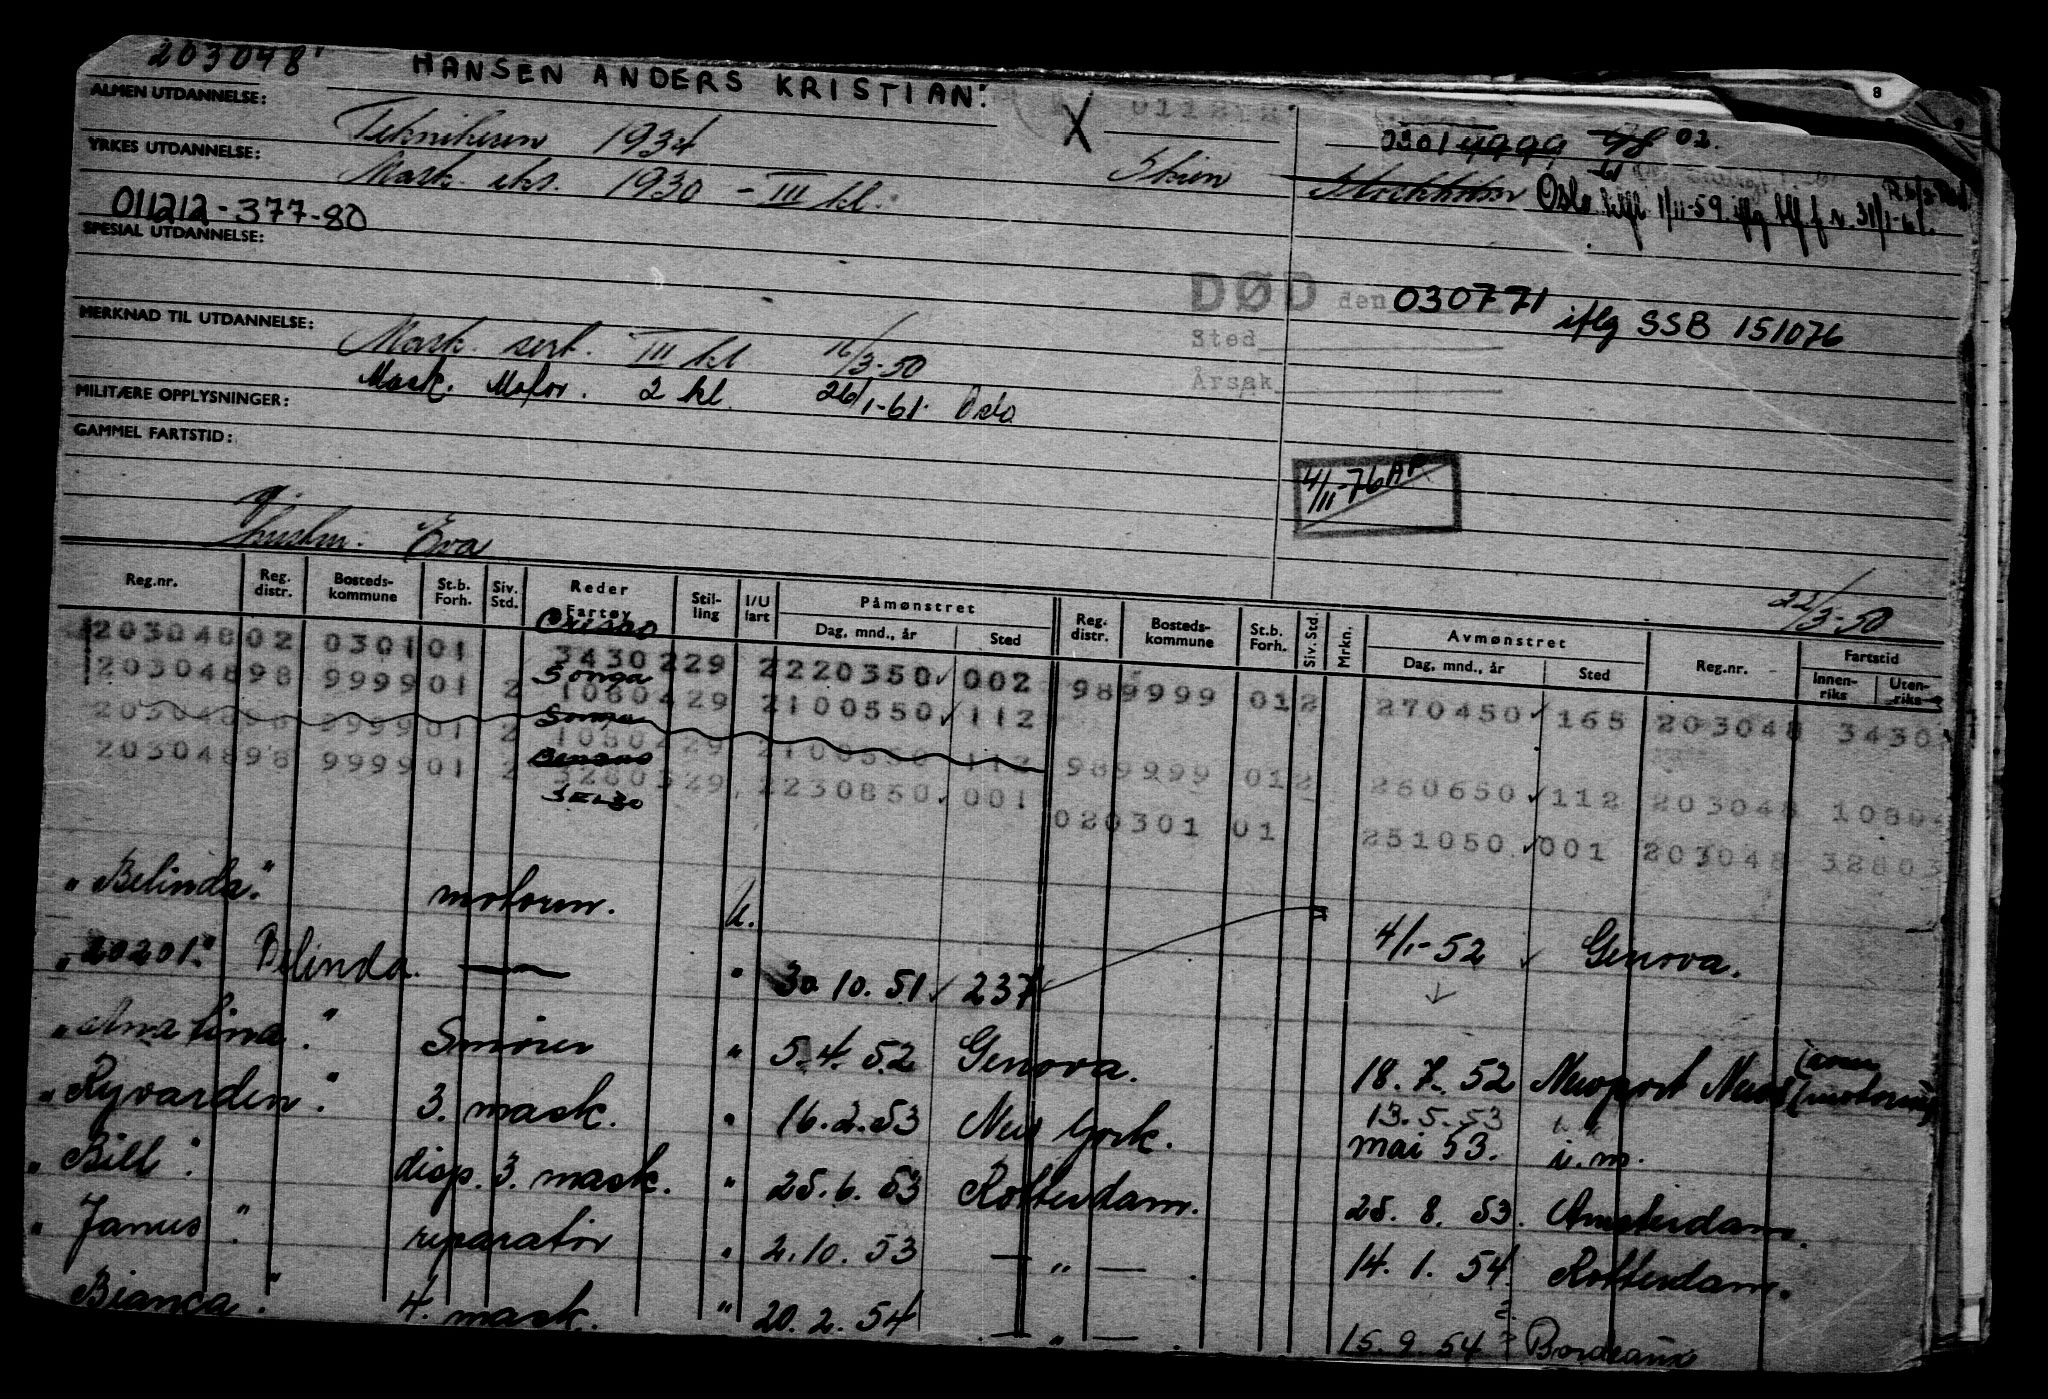 203048
HANSEN ANDERS KRISTIAN.
8
X
ALMEN UTDANNELSE:
Teknikeren 1934
Skien
0301 9999 98 02.
YRKES UTDANNELSE:
Mask. eks. 1930 - III kl.
Stockholm Oslo 1/11-59 31/1-61.
011212-377-80
SPESIAL UTDANNELSE:
DØD den 030771 iflg SSB 151076
Sted
Årsak
MERKNAD TIL UTDANNELSE:
Mask. sert. III kl. 16/3-50
Mask. Motor. 2 kl. 26/1-61. Oslo
MILITÆRE OPPLYSNINGER:
GAMMEL FARTSTID:
4/11-76 AP
g.
hustru. Eva
22/3-50
Reg.nr. Reg. distr. Bosteds-kommune St.b. Forh. Siv. Std. Reder Fartøy Stil-ling I/U fart Påmønstret Dag, mnd., år Sted Reg. distr. Bosteds-kommune St.b. Forh. Siv. Std. Mrkn. Avmønstret Dag, mnd., år Sted Reg.nr. Fartstid Innen-riks Uten-riks
203048 02 0301 01 3430229 2 220350 002 98 9999 01 2 270450 165 203048 3430
Songa
203048 98 9999 01 2 1080429 2 100550 112
203048 98 9999 01 2 1080429 2 100550 112 98 9999 01 2 260650 112 203048 1080
203048 98 9999 01 2 3280329 2 230850 001 02 0301 01 251050 001 203048 32803
SELBO
"Belinda." motorm. u. 4/1-52 Genova.
"20201." Belinda. — " 30.10.51 237
"Ana Lina." Smører " 5.4.52 Genova. 18.7.52 Newport News
"Ryvarden." 3. mask. " 16.2.53 New York. 13.5.53
mai 53. i.m.
"Bill". disp. 3. mask. " 25.6.53 Rotterdam. 25.8.53. Amsterdam.
"Janus". reparatør " 2.10.53 — " — . 14.1.54. Rotterdam.
Bianca". 4. mask. " 20.2.54 — " — . 15.9.54 ? Bordeaux